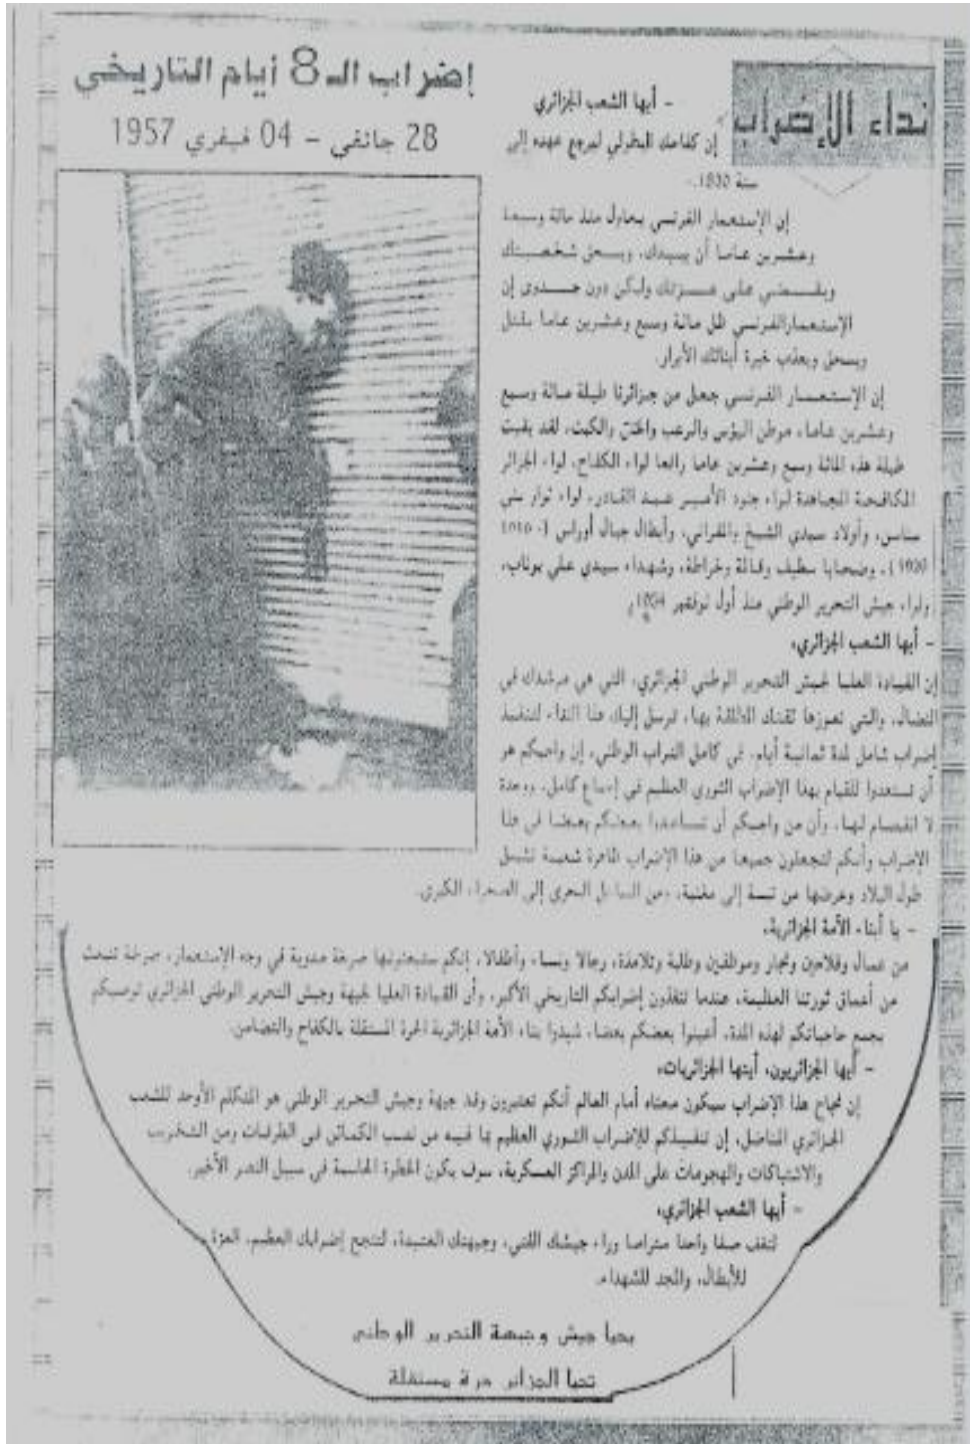 نداء الإضراب
إضراب الـ 8 أيام التاريخي
28 جانفي - 04 فيفري 1957
- أيها الشعب الجزائري
إن كفاحك البطولي ليرجع عهده إلى
سنة 1830.
إن الإستعمار الفرنسي يحاول منذ مائة وسبعا
وعشرين عاما أن يبيدك، ويسحق شخصيتك
ويقضي على عزتك ولكن دون جدوى إن
الإستعمار الفرنسي ظل مائة وسبع وعشرين عاما يقتل
ويسحل ويعذب خيرة أبنائك الأبرار.
إن الإستعمار الفرنسي جعل من جزائرنا طيلة مائة وسبع
وعشرين عاما، موطن البؤس والرعب والخنق والكبت، لقد بقيت
طيلة هذه المائة وسبع وعشرين عاما رافعا لواء الكفاح، لواء الجزائر
المكافحة المجاهدة لواء جنود الأمير عبد القادر، لواء ثوار بني
سناسن، وأولاد سيدي الشيخ والمقراني، وأبطال جبال أوراس
، وضحايا سطيف وقالمة وخراطة، وشهداء سيدي علي بوناب،
ولواء جيش التحرير الوطني منذ أول نوفمبر 1954
- أيها الشعب الجزائري،
إن القيادة العليا لجيش التحرير الوطني الجزائري، التي هي مرشدك في
النضال، والتي ثقتك المطلقة بها، ترسل إليك هذا النداء لتنفيذ
إضراب شامل لمدة ثمانية أيام، في كامل التراب الوطني، إن واجبكم هو
أن تستعدوا للقيام بهذا الإضراب الثوري العظيم في إجماع كامل، ووحدة
لا انفصام لها، وأن من واجبكم أن تساعدوا بعضكم بعضا في هذا
الإضراب وأنكم لتجعلون جميعا من هذا الإضراب ظاهرة شعبية تشمل
طول البلاد وعرضها من تبسة إلى مغنية، ومن الساحل البحري إلى الصحراء الكبرى.
- يا أبناء الأمة الجزائرية،
من عمال وفلاحين وتجار وموظفين وطلبة وتلامذة، رجالا ونساء وأطفالا، إنكم ستبعثونها صرخة مدوية في وجه الإستعمار، صرخة تنبعث
من أعماق ثورتنا العظيمة، عندما تنفذون إضرابكم التاريخي الأكبر، وأن القيادة العليا لجبهة وجيش التحرير الوطني الجزائري توصيكم
بجمع حاجياتكم لهذه المدة، أعينوا بعضكم بعضا، شيدوا بناء الأمة الجزائرية الحرة المستقلة بالكفاح والتضامن.
- أيها الجزائريون، أيتها الجزائريات،
إن نجاح هذا الإضراب سيكون معناه أمام العالم أنكم تعتبرون وفد جبهة وجيش التحرير الوطني هو المتكلم الأوحد للشعب
الجزائري المناضل، إن تنفيذكم للإضراب الثوري العظيم بما فيه من نصب الكمائن في الطرقات ومن التخريب
والاشتباكات والهجومات على المدن والمراكز العسكرية، سوف يكون الخطوة الحاسمة في سبيل النصر الأخير.
- أيها الشعب الجزائري،
لتقف صفا واحدا متراصا وراء جيشك الفتي، وجبهتك العتيدة، لتنجح إضرابك العظيم، العزة
للأبطال، والمجد للشهداء.
يحيا جيش وجبهة التحرير الوطني
تحيا الجزائر حرة مستقلة